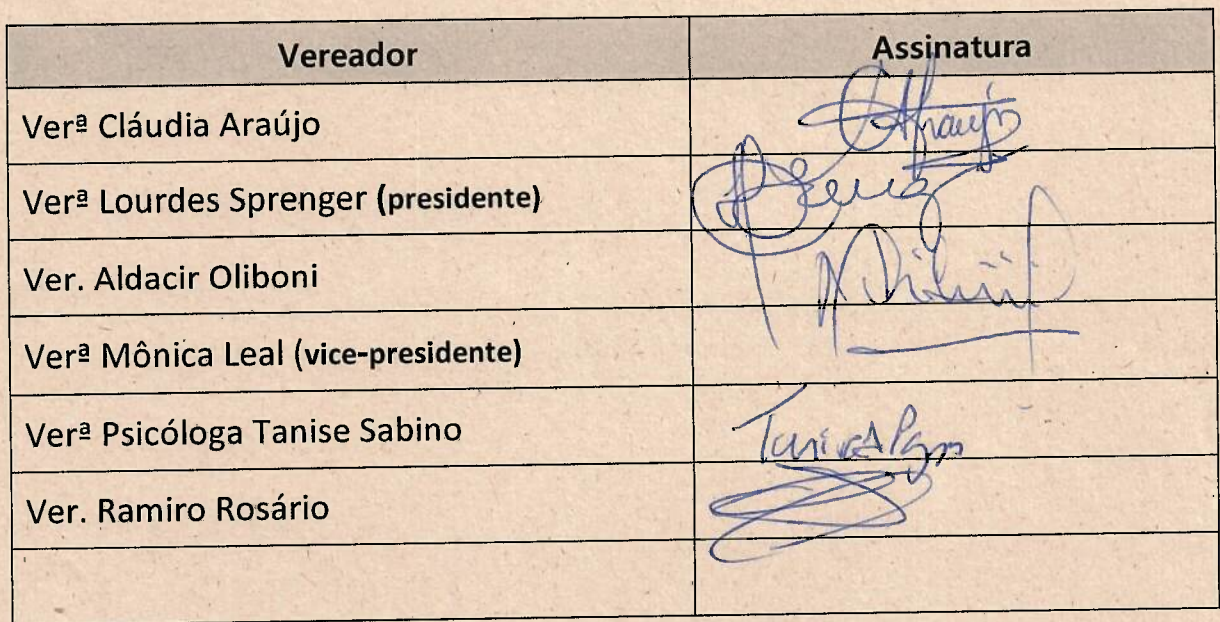 Vereador Assinatura
Verª Cláudia Araújo CAraujo
Verª Lourdes Sprenger (presidente)
Ver. Aldacir Oliboni
Verª Mônica Leal (vice-presidente)
Verª Psicóloga Tanise Sabino
Ver. Ramiro Rosário